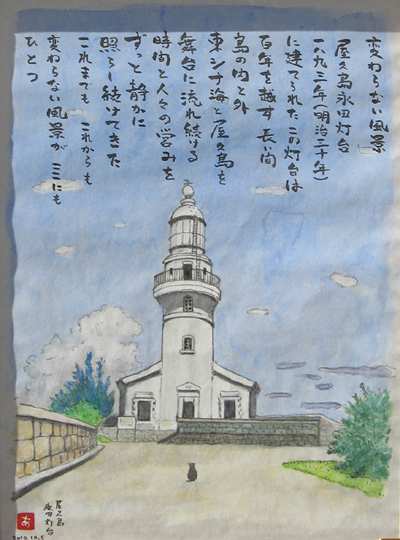 変わらない風景
屋久島永田灯台
一八九三年(明治三十年)
に建てられたこの灯台は
百年を越す長い間
島の内と外
東シナ海と屋久島を
舞台に流れ続ける
時間と人々の営みを
ずっと静かに
照らし続けてきた
これまでも これからも
変わらない風景が ここにも
ひとつ
屋久島
永田灯台
あ